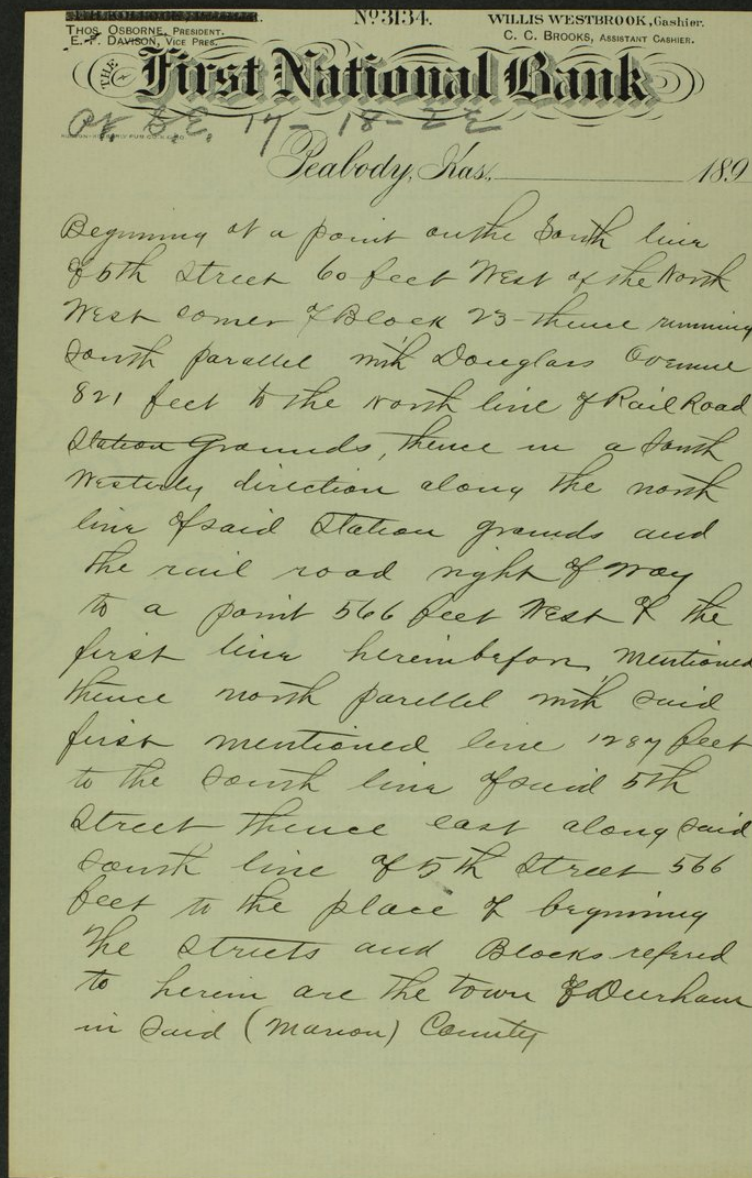 No 3134.
WILLIS WESTBROOK, Cashier.
THOS. OSBORNE, PRESIDENT.
E. F. DAVISON, VICE PRES.
C. C. BROOKS, ASSISTANT CASHIER.
THE First National Bank
17-18-2E
Peabody, Kas. 189
Beginning at a point on the South line
of 5th Street 60 feet West of the North
West corner of Block 23 - thence running
South parallel with Douglass Avenue
821 feet to the North line of Rail Road
Station Grounds, thence in a South
Westerly direction along the north
line of said Station grounds and
the rail road right of way
to a point 566 feet West of the
first line hereinbefore mentioned
thence north parellel with said
first mentioned line 1287 feet
to the South line of said 5th
Street thence east along said
South line of 5th Street 566
feet to the place of beginning
The Streets and Blocks refered
to herein are the town of Durham
in said (Marion) County